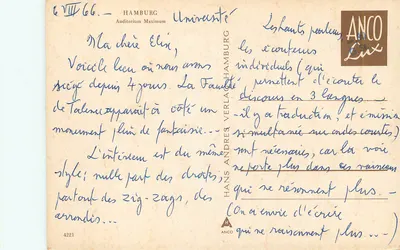 6 VIII 66. -
HAMBURG
Auditorium Maximum
Université
Ma chère Elix,
Voici le lieu où nous avons
siégé depuis 4 jours. La Faculté
de Talence apparaît à côté un
monument plein de fantaisie...
L'intérieur est du même
style; nulle part des droites,
partout des zig-zags, des
arrondis...
4225
HANS ANDRES VERLAG HAMBURG
ANCO
ANCO
Lux
Les hauts parleurs,
les écouteurs
individuels (qui
permettent d'écouter le
discours en 3 langues -
il y a traduction et émission
simultanée sur ondes courtes)
sont nécessaires, car la voix
ne porte plus dans ces vaisseaux
qui ne résonnent plus. -
(On a envie d'écrire
qui ne raisonnent plus...)